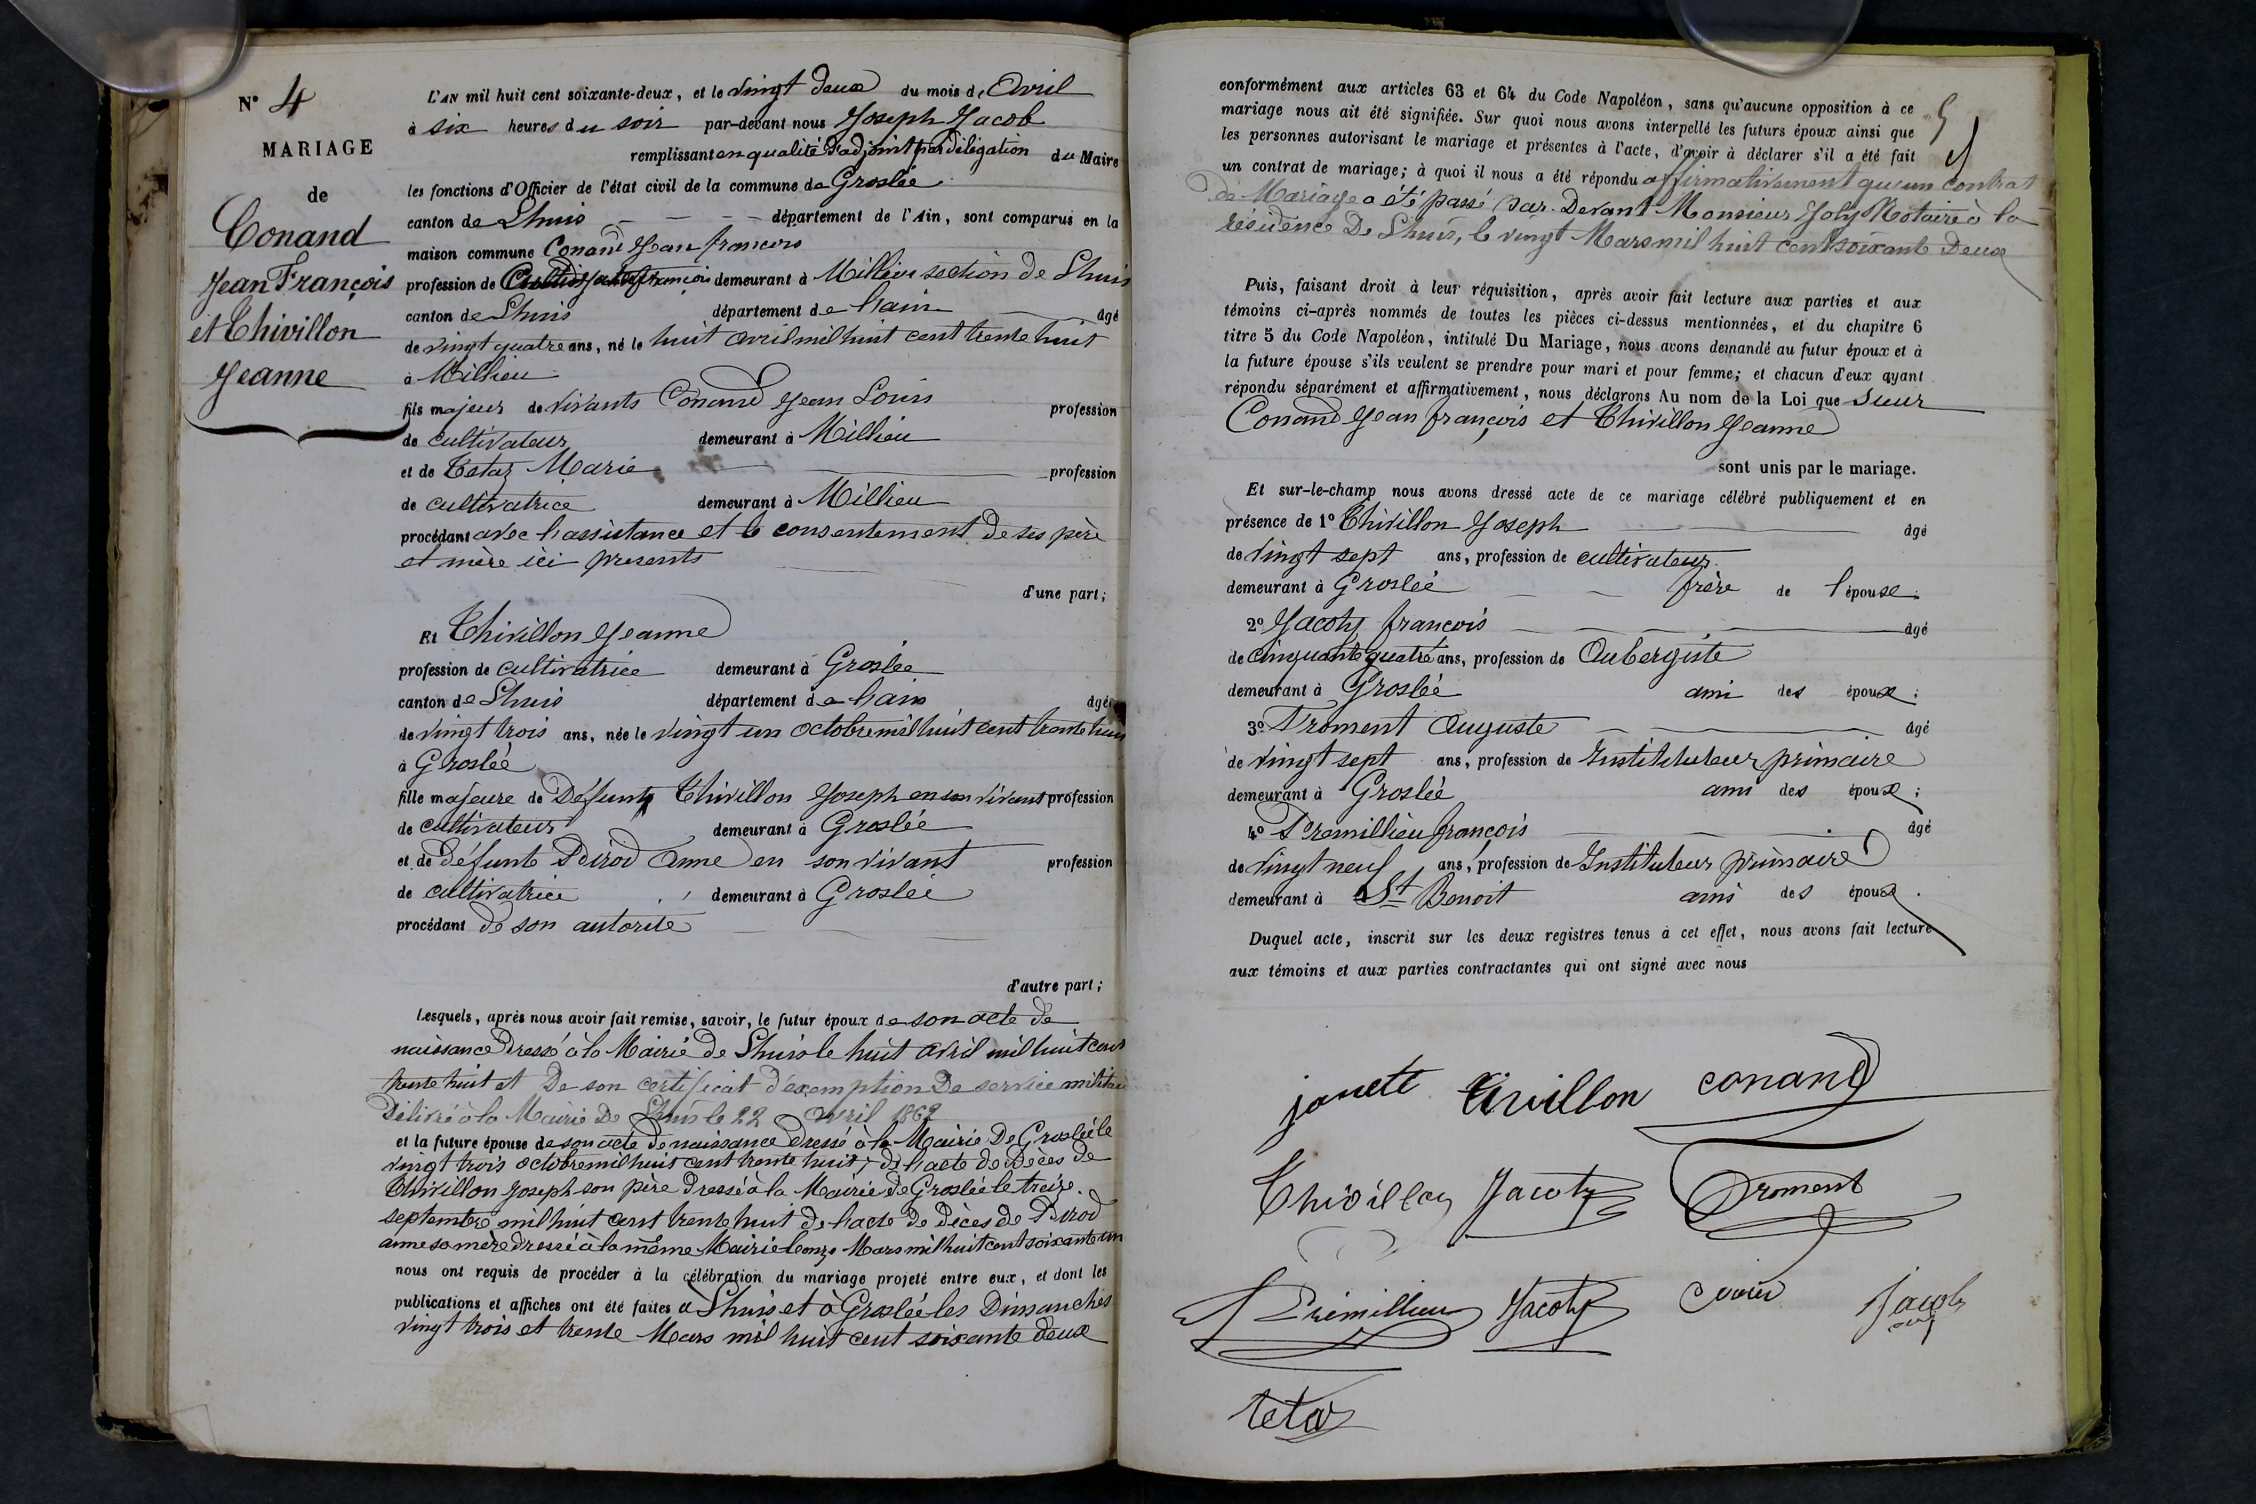 N° 4
MARIAGE
de
Conand
Jean François
et Thivillon
Jeanne
L'AN mil huit cent soixante-deux, et le vingt deux du mois d' Avril
à six heures du soir par-devant nous Joseph Jacob
remplissant en qualité d'adjoint par délégation du Maire
les fonctions d'Officier de l'état civil de la commune de Groslée
canton de Lhuis département de l'Ain, sont comparus en la
maison commune Conand Jean francois
profession de demeurant à Millieu section de Lhuis
canton de Lhuis département de hain âgé
de vingt quatre ans, né le huit avril mil huit cent trente huit
à Millieu
fils majeur de vivants Conand Jean Louis profession
de cultivateur demeurant à Millieu
et de Tetaz Marie profession
de cultivatrice demeurant à Millieu
procédant avec hassistance et le consentement de ses père
et mère ici presents
d'une part;
Et Thivillon Jeanne
profession de cultivatrice demeurant à Groslée
canton de Lhuis département de hain âgée
de vingt trois ans, née le vingt un octobre mil huit cent trente huit
à Groslée
fille majeure de Défunt Thivillon Joseph en son vivant profession
de cultivateur demeurant à Groslée
et de défunte Pirod Anne en son vivant profession
de cultivatrice demeurant à Groslée
procédant de son autorité
d'autre part;
Lesquels, après nous avoir fait remise, savoir, le futur époux de son acte de
naissance dressé à la Mairie de Lhuis le huit avril mil huit cent
trente huit et De son certificat d'exemption De service militaire
Délivré à la Mairie De Lhuis le 22 Avril 1862
et la future épouse de son acte de naissance dressé à la Mairie De Groslée le
vingt trois octobre mil huit cent trente huit, de hacte de décès de
Thivillon Joseph son père dressé à la Mairie de Groslée le treize
septembre mil huit cent trente huit de hacte de décès de Pirod
anne sa mère dressé à la même Mairie le onze Mars mil huit cent soixante un
nous ont requis de procéder à la célébration du mariage projeté entre eux, et dont les
publications et affiches ont été faites à Lhuis et à Groslée les Dimanches
vingt trois et trente Mars mil huit cent soixante deux
conformément aux articles 63 et 64 du Code Napoléon, sans qu'aucune opposition à ce
mariage nous ait été signifiée. Sur quoi nous avons interpellé les futurs époux ainsi que
les personnes autorisant le mariage et présentes à l'acte, d'avoir à déclarer s'il a été fait
un contrat de mariage; à quoi il nous a été répondu affirmativement qu'un contrat
de Mariage a été passé par Devant Monsieur Joly Notaire à la
résidence De Lhuis, le vingt Mars mil huit cent soixante Deux
Puis, faisant droit à leur réquisition, après avoir fait lecture aux parties et aux
témoins ci-après nommés de toutes les pièces ci-dessus mentionnées, et du chapitre 6
titre 5 du Code Napoléon, intitulé Du Mariage, nous avons demandé au futur époux et à
la future épouse s'ils veulent se prendre pour mari et pour femme; et chacun d'eux ayant
répondu séparément et affirmativement, nous déclarons Au nom de la Loi que sieur
Conand Jean françois et Thivillon Jeanne
sont unis par le mariage.
Et sur-le-champ nous avons dressé acte de ce mariage célébré publiquement et en
présence de 1° Thivillon Joseph âgé
de vingt sept ans, profession de cultivateur
demeurant à Groslée frère de l'épouse.
2° Jacoty francois âgé
de cinquante quatre ans, profession de Aubergiste
demeurant à Groslée ami des époux;
3° Froment Auguste âgé
de vingt sept ans, profession de Instituteur primaire
demeurant à Groslée ami des époux;
4° Premillieu françois âgé
de vingt neuf ans, profession de Instituteur primaire
demeurant à St Benoit ami des époux.
Duquel acte, inscrit sur les deux registres tenus à cet effet, nous avons fait lecture
aux témoins et aux parties contractantes qui ont signé avec nous
tivillon conand
Thivillon Jacoty Froment
Premillieu Jacoty Jacob
tetaz